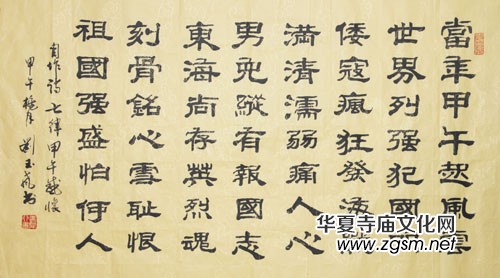 當年甲午起風雲
世界列强犯國門
倭寇瘋狂發
滿清濡弱痛人心
男兒縱有報國志
東海尚存英烈魂
刻骨銘心雪恥恨
祖國强盛怕何人
自作詩七律甲午感懷
甲午 月 劉玉 書
华夏寺庙文化网
www.zgsm.net